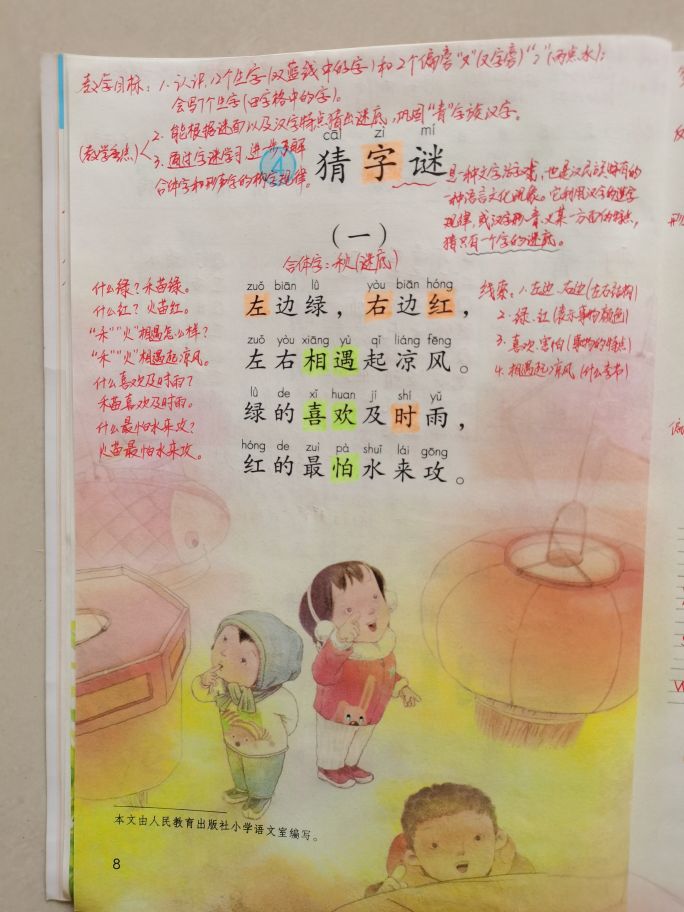 教学目标：1.认识12个生字(双蓝线中的字)和2个偏旁“又”(又字旁)“冫”(两点水)；
会写7个生字(田字格中的字)。
2.能根据谜面以及汉字特点猜出谜底，巩固“青”字族汉字。
(教学重点)
3.通过字谜学习进一步了解
合体字和形声字的构字规律。
cāi zì mí
4 猜字谜
是一种文字游戏，也是汉民族特有的
一种语言文化现象。它利用汉字的造字
规律，或汉字形、音、义某一方面的特点，
猜只有一个字的谜底。
（一）
合体字：秋(谜底)
什么绿？禾苗绿。
什么红？火苗红。
“禾”“火”相遇怎么样？
“禾”“火”相遇起凉风。
什么喜欢及时雨？
禾苗喜欢及时雨。
什么最怕水来攻？
火苗最怕水来攻。
zuǒ biān lǜ yòu biān hóng
左边绿，右边红，
zuǒ yòu xiāng yù qǐ liáng fēng
左右相遇起凉风。
lǜ de xǐ huan jí shí yǔ
绿的喜欢及时雨，
hóng de zuì pà shuǐ lái gōng
红的最怕水来攻。
线索：1.左边、右边(左右结构)
2.绿、红(表示事物颜色)
3.喜欢、害怕(事物的特点)
4.相遇起凉风(什么季节)
本文由人民教育出版社小学语文室编写。
8